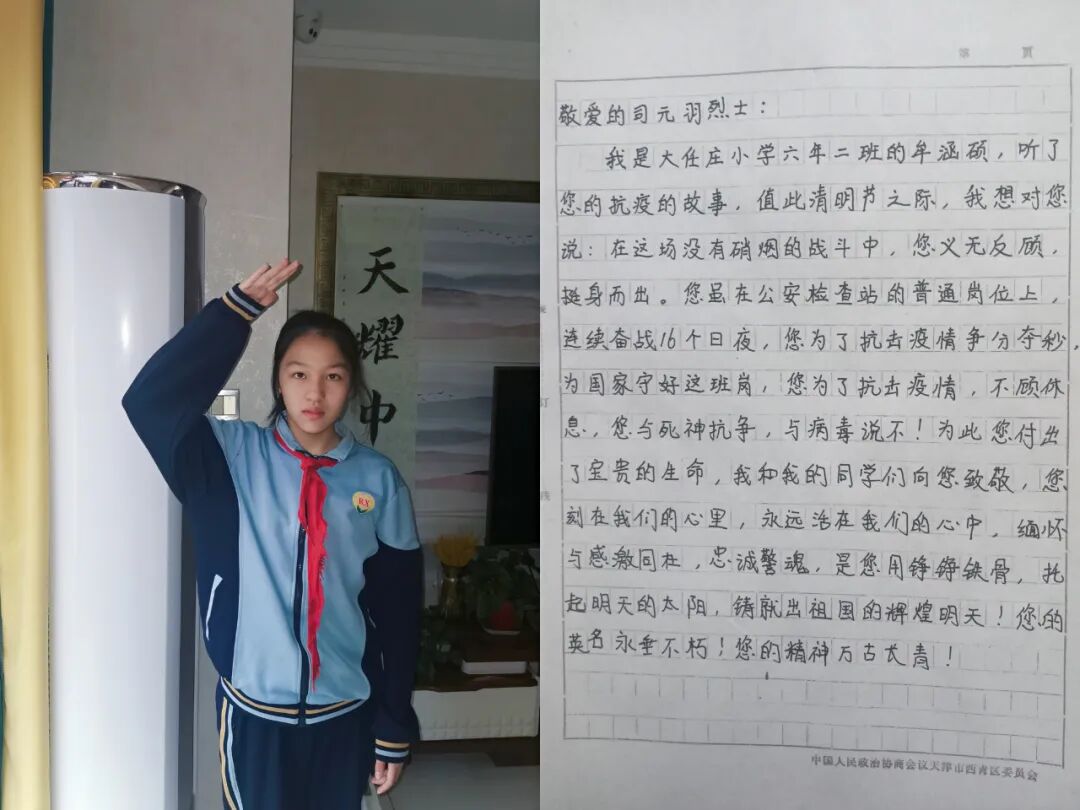 天
耀
中
RX
第 页
敬爱的司元羽烈士：
我是大任庄小学六年二班的牟涵硕，听了
您的抗疫的故事，值此清明节之际，我想对您
说：在这场没有硝烟的战斗中，您义无反顾，
挺身而出。您虽在公安检查站的普通岗位上，
连续奋战16个日夜，您为了抗击疫情争分夺秒，
为国家守好这班岗，您为了抗击疫情，不顾休
息，您与死神抗争，与病毒说不！为此您付出
了宝贵的生命，我和我的同学们向您致敬，您
刻在我们的心里，永远活在我们的心中，缅怀
与感激同在，忠诚警魂，是您用铮铮铁骨，托
起明天的太阳，铸就出祖国的辉煌明天！您的
英名永垂不朽！您的精神万古长青！
订
线
中国人民政治协商会议天津市西青区委员会